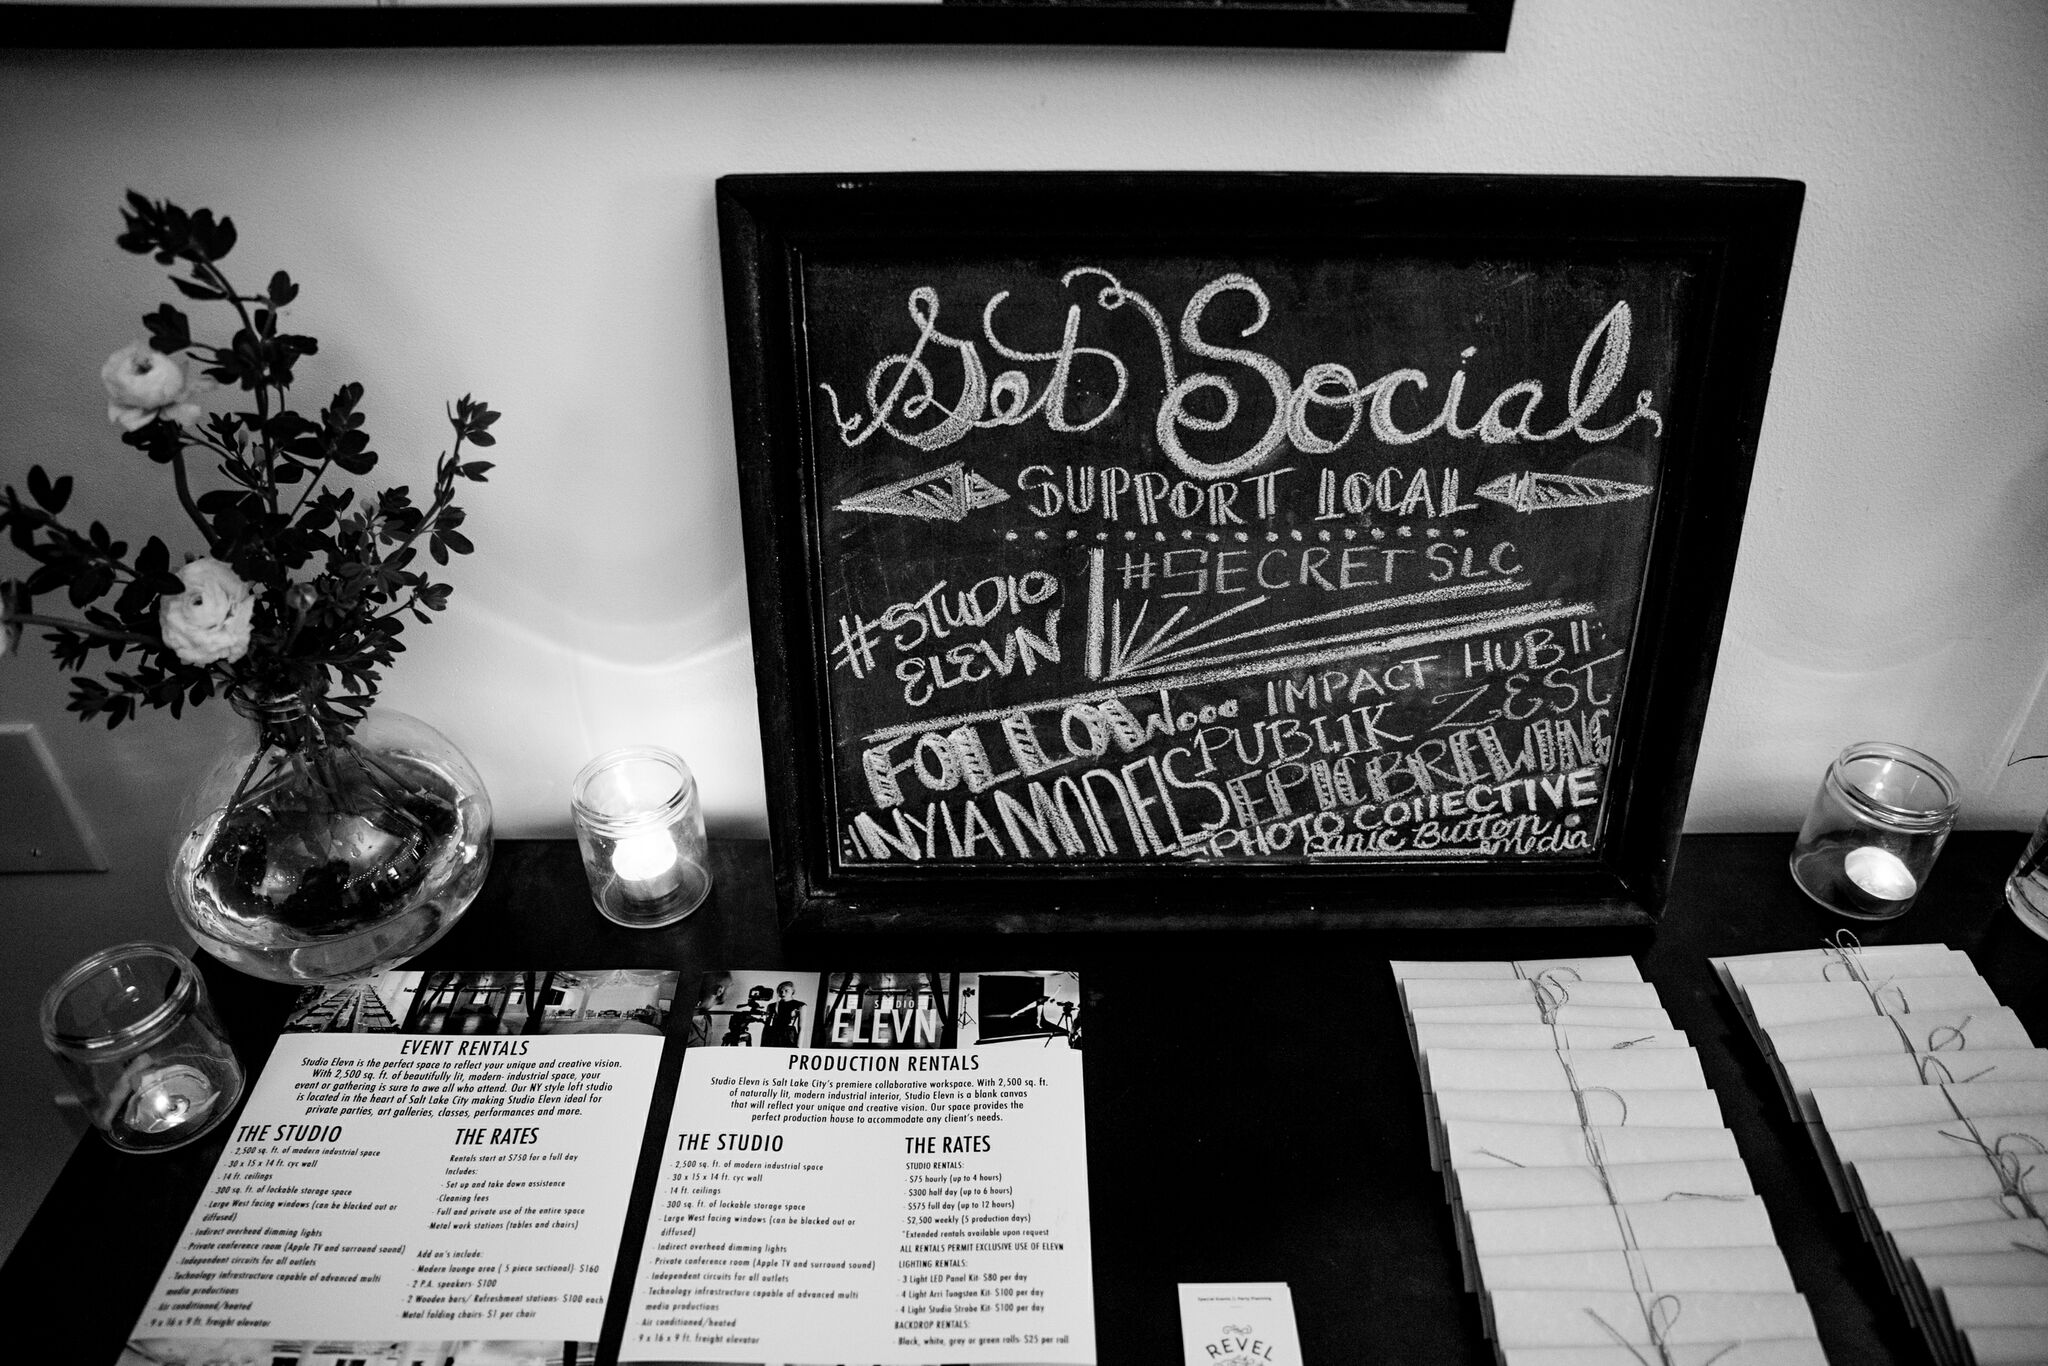 Get Social
SUPPORT LOCAL
#SECRET SLC
#STUDIO
ELEVN
FOLLOW... IMPACT HUB
PUBLIK ZEST
NYIA MODELS EPIC BREWING
PHOTO COLLECTIVE
Panic Button
Media
EVENT RENTALS
Studio Elevn is the perfect space to reflect your unique and creative vision.
With 2,500 sq. ft. of beautifully lit, modern- industrial space, your
event or gathering is sure to awe all who attend. Our NY style loft studio
is located in the heart of Salt Lake City making Studio Elevn ideal for
private parties, art galleries, classes, performances and more.
THE STUDIO
- 2,500 sq. ft. of modern industrial space
- 30 x 15 x 14 ft. cyc wall
- 14 ft. ceilings
- 300 sq. ft. of lockable storage space
- Large West facing windows (can be blacked out or
diffused)
- Indirect overhead dimming lights
- Private conference room (Apple TV and surround sound)
- Independent circuits for all outlets
- Technology infrastructure capable of advanced multi
media productions
- Air conditioned/heated
- 9 x 16 x 9 ft. freight elevator
THE RATES
Rentals start at $750 for a full day
Includes:
- Set up and take down assistence
-Cleaning fees
- Full and private use of the entire space
-Metal work stations (tables and chairs)
Add on's include:
- Modern lounge area ( 5 piece sectional)- $160
- 2 P.A. speakers- $100
- 2 Wooden bars/ Refreshment stations- $100 each
- Metal folding chairs- $1 per chair
STUDIO
ELEVN
PRODUCTION RENTALS
Studio Elevn is Salt Lake City's premiere collaborative workspace. With 2,500 sq. ft.
of naturally lit, modern industrial interior, Studio Elevn is a blank canvas
that will reflect your unique and creative vision. Our space provides the
perfect production house to accommodate any client's needs.
THE STUDIO
- 2,500 sq. ft. of modern industrial space
- 30 x 15 x 14 ft. cyc wall
- 14 ft. ceilings
- 300 sq. ft. of lockable storage space
- Large West facing windows (can be blacked out or
diffused)
- Indirect overhead dimming lights
- Private conference room (Apple TV and surround sound)
- Independent circuits for all outlets
- Technology infrastructure capable of advanced multi
media productions
- Air conditioned/heated
- 9 x 16 x 9 ft. freight elevator
THE RATES
STUDIO RENTALS:
- $75 hourly (up to 4 hours)
- $300 half day (up to 6 hours)
- $575 full day (up to 12 hours)
- $2,500 weekly (5 production days)
*Extended rentals available upon request
ALL RENTALS PERMIT EXCLUSIVE USE OF ELEVN
LIGHTING RENTALS:
- 3 Light LED Panel Kit- $80 per day
- 4 Light Arri Tungsten Kit- $100 per day
- 4 Light Studio Strobe Kit- $100 per day
BACKDROP RENTALS:
- Black, white, grey or green rolls- $25 per roll
Special Events & Party Planning
REVEL